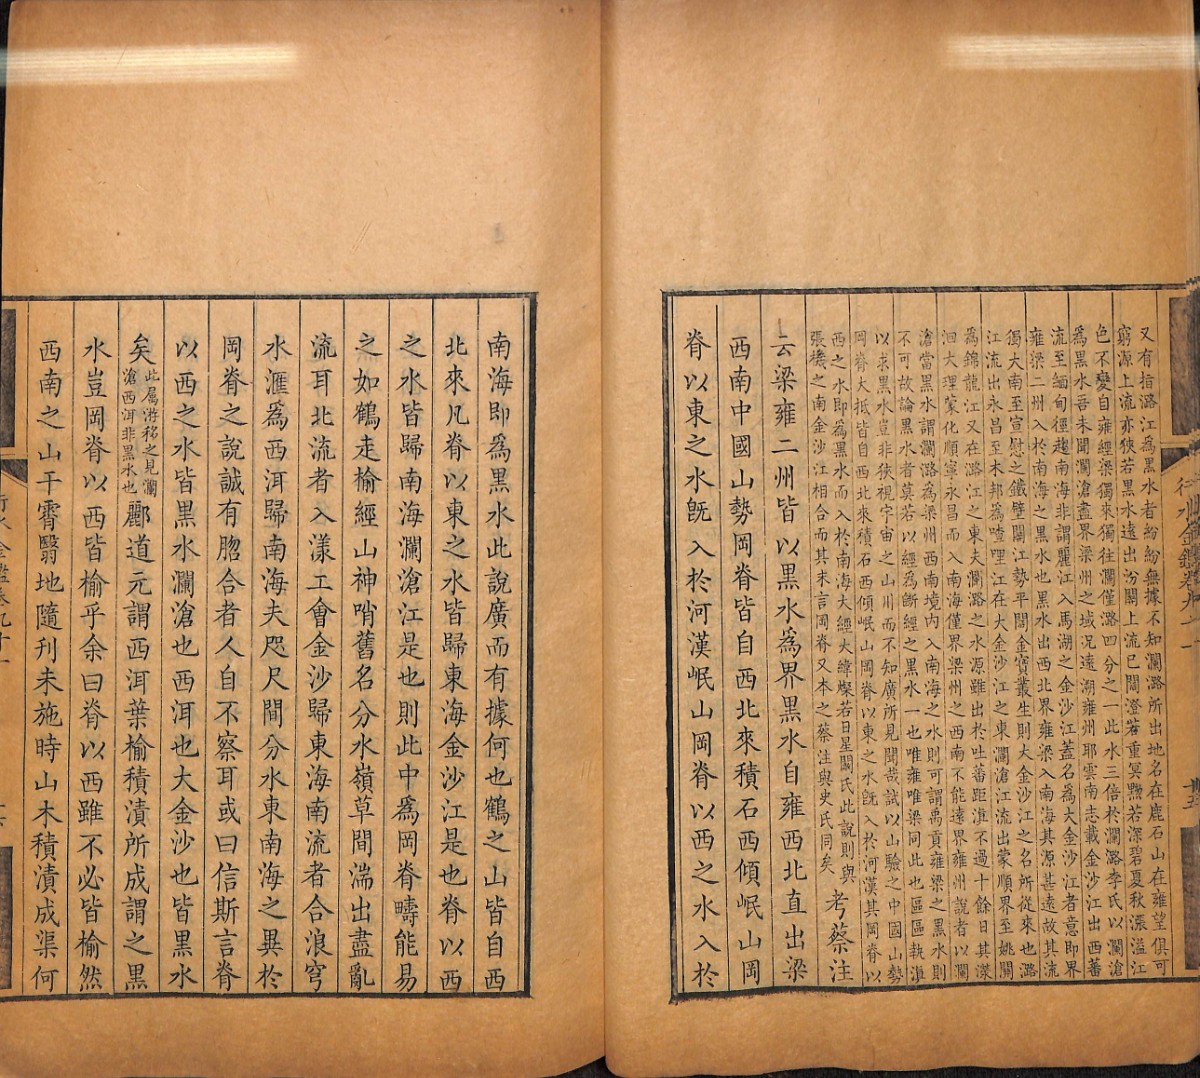 又有指潞江爲黑水者紛紛無據不知瀾潞所出地名在鹿石山在雍望俱可
窮源上流亦狹若黑水遠出汾關上流已闊澄若重冥黝若深碧夏秋漲溢江
色不變自雍經梁獨來獨往瀾僅潞四分之一此水三倍於瀾潞李氏以瀾滄
爲黑水吾未聞瀾滄盡界梁州之域況遠溯雍州耶雲南志載金沙江出西蕃
流至緬甸徑趨南海非謂麗江入馬湖之金沙江蓋名爲大金沙江者意即界
雍梁二州入於南海之黑水也黑水出西北界雍梁入南海其源甚遠故其流
獨大南至宣慰之鐵壁關江勢平闊金寶叢生則大金沙江之名所從來也潞
江流出永昌至木邦爲喳哩江在大金沙江之東瀾滄江流出蒙順界至姚關
爲錦龍江又在潞江之東夫瀾潞之水源雖出於吐蕃距淮不過十餘日其濚
洄大理蒙化順寧永昌而入南海僅界梁州之西南不能遠界雍州說者以瀾
滄當黑水謂瀾潞爲梁州西南境內入南海之水則可謂禹貢雍梁之黑水則
不可故論黑水者莫若以經爲斷經之黑水一也唯雍唯梁同此也區區執滇
以求黑水豈非狹視宇宙之山川而不知廣所見聞哉試以山驗之中國山勢
岡脊大抵皆自西北來積石西傾岷山岡脊以東之水旣入於河漢其岡脊以
西之水即爲黑水而入於南海大經大緯燦若日星闞氏此說則與
張機之南金沙江相合而其末言岡脊又本之蔡注與史氏同矣 考蔡注
云梁雍二州皆以黑水爲界黑水自雍西北直出梁
西南中國山勢岡脊皆自西北來積石西傾岷山岡
脊以東之水旣入於河漢岷山岡脊以西之水入於
南海即爲黑水此說廣而有據何也鶴之山皆自西
北來凡脊以東之水皆歸東海金沙江是也脊以西
之水皆歸南海瀾滄江是也則此中爲岡脊疇能易
之如鶴走榆經山神哨舊名分水嶺草間湍出盡亂
流耳北流者入漾工會金沙歸東海南流者合浪穹
水滙爲西洱歸南海夫咫尺間分水東南海之異於
岡脊之說誠有脗合者人自不察耳或曰信斯言脊
以西之水皆黑水瀾滄也西洱也大金沙也皆黑水
矣此屬游移之見瀾滄西洱非黑水也酈道元謂西洱葉榆積漬所成謂之黑
水豈岡脊以西皆榆乎余曰脊以西雖不必皆榆然
西南之山干霄翳地隨刋未施時山木積漬成渠何